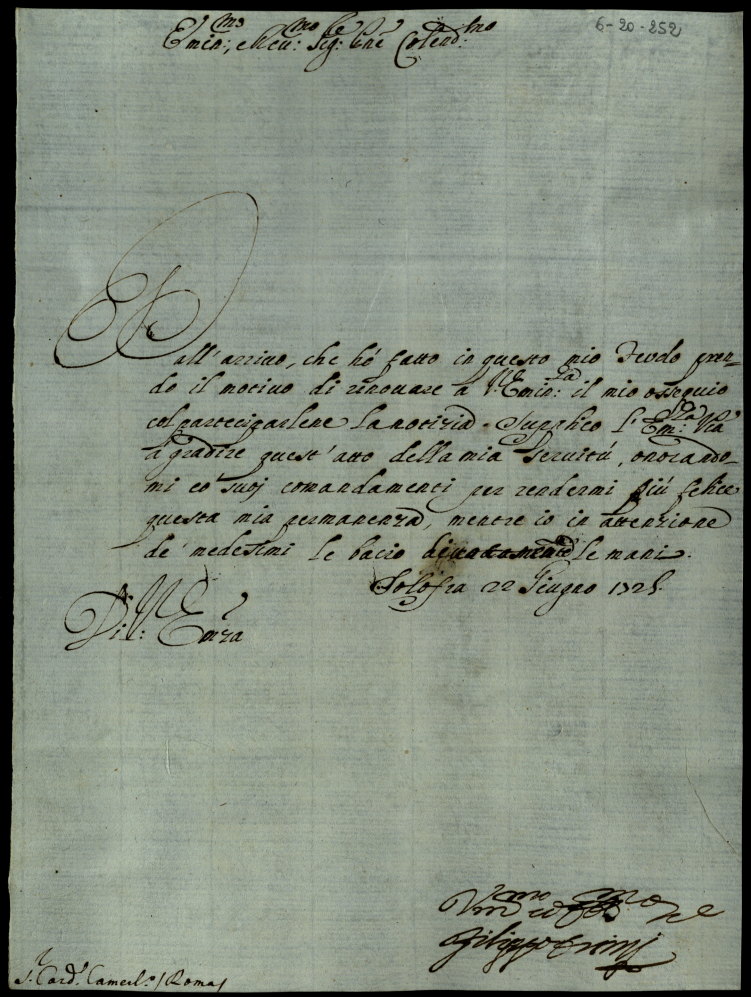 6-20-252
Emin:mo, e Reu:mo Sig:re Pne Colend:mo
Dall' arriuo, che hó fatto in questo mio Feudo pren-
do il motiuo di rinouare à V: Emin:za il mio ossequio
col parteciparlene la notizia. Supplico l' Em:za Vra
à gradire quest' atto della mia seruitú, onorando-
mi có suoj comandamenti per rendermi piú felice
questa mia permanenza, mentre io in attenzione
de' medesimi le bacio diuotamente le mani.
Solofra 22 Giugno 172
Di V: Emza
S: Card: Camerl:o / Roma /
Filippo Orsini